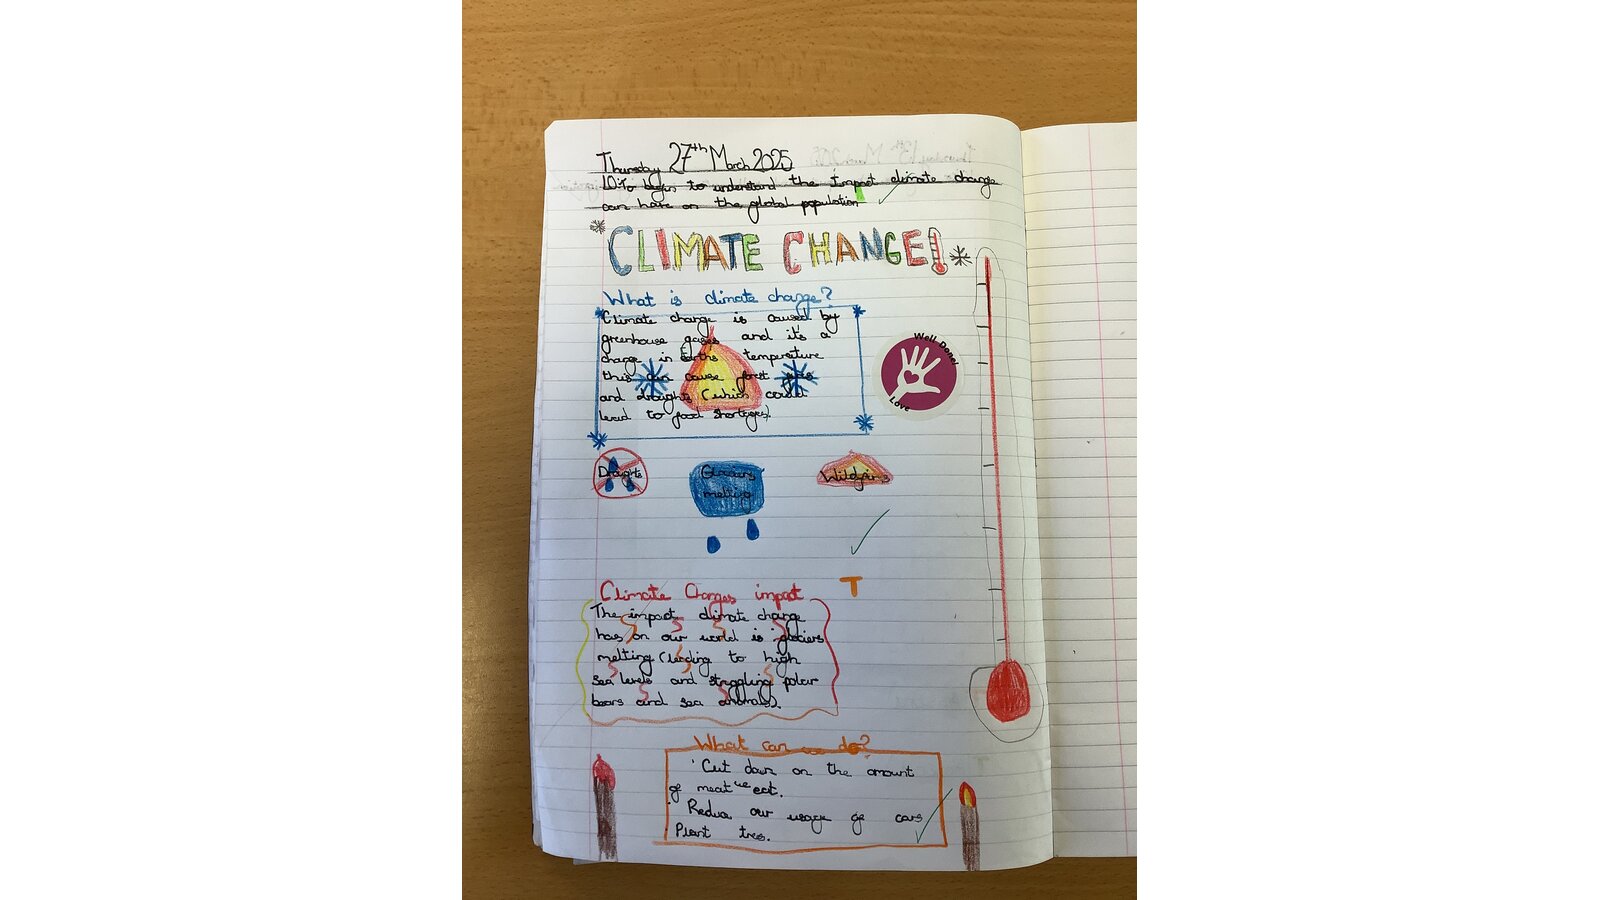 Thursday 27th March 2025
LO: To begin to understand the impact climate change
can have on the global population
CLIMATE CHANGE!
What is climate change?
Climate change is caused by
greenhouse gases and it's a
change in Earths temperature
this can cause forest fires
and droughts (which could
lead to food shortages).
Well Done!
Love
Droughts
Glaciers
melting
Wildfires
T
Climate Changes impact
The impact climate change
has on our world is glaciers
melting (leading to high
sea levels and struggling polar
bears and sea animals).
What can we do?
Cut down on the amount
of meat we eat.
Reduce our usage of cars
Plant tres.